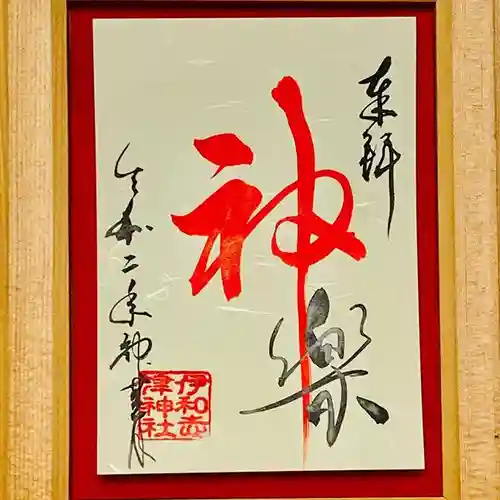 奉拝
神樂
令和二年神無月
伊和志
津神社